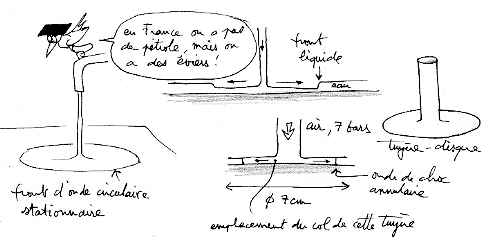 en France on a pas
de pétrole, mais on
a des éviers !
front
liquide
eau
air, 7 bars
tuyère-disque
onde de choc
annulaire
ø 7cm
front d'onde circulaire
stationnaire
emplacement du col de cette tuyère